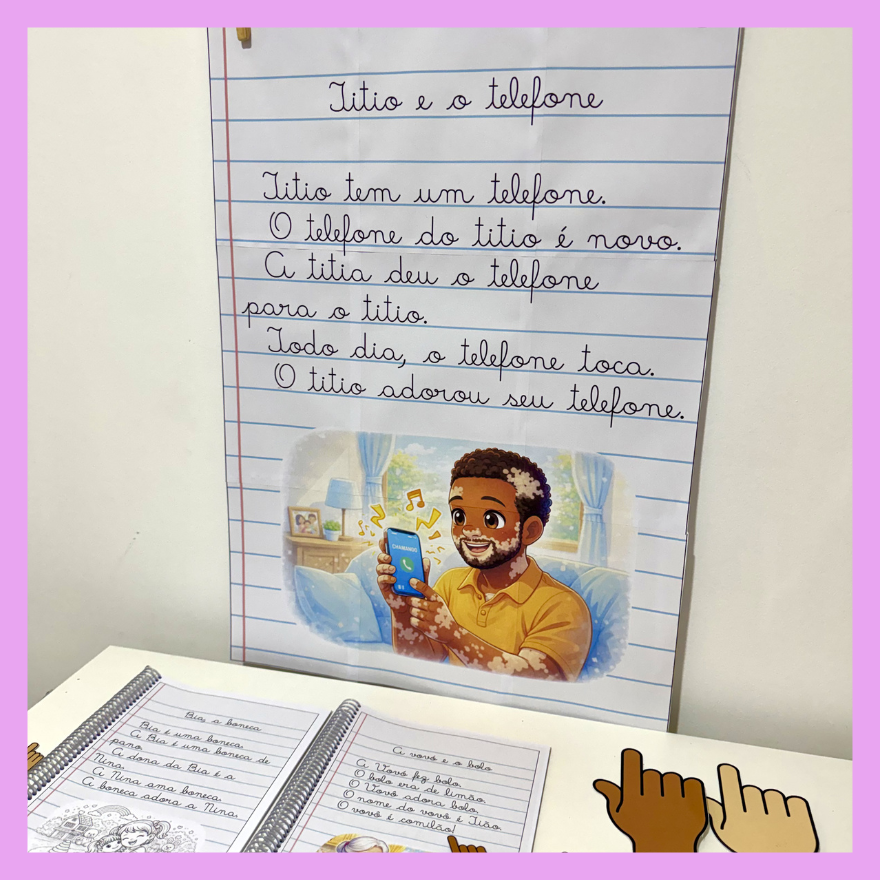 Titio e o telefone
Titio tem um telefone.
O telefone do titio é novo.
A titia deu o telefone
para o titio.
Todo dia, o telefone toca.
O titio adorou seu telefone.
CHAMANDO
Bia, a boneca
Bia é uma boneca.
A Bia é uma boneca de
pano.
A dona da Bia é a
Nina.
A Nina ama boneca.
A boneca adora a Nina.
A vovó e o bolo
A Vovó fez bolo.
O bolo era de limão.
O Vovô adora bolo.
O nome do vovô é Tião.
O vovô é comilão!